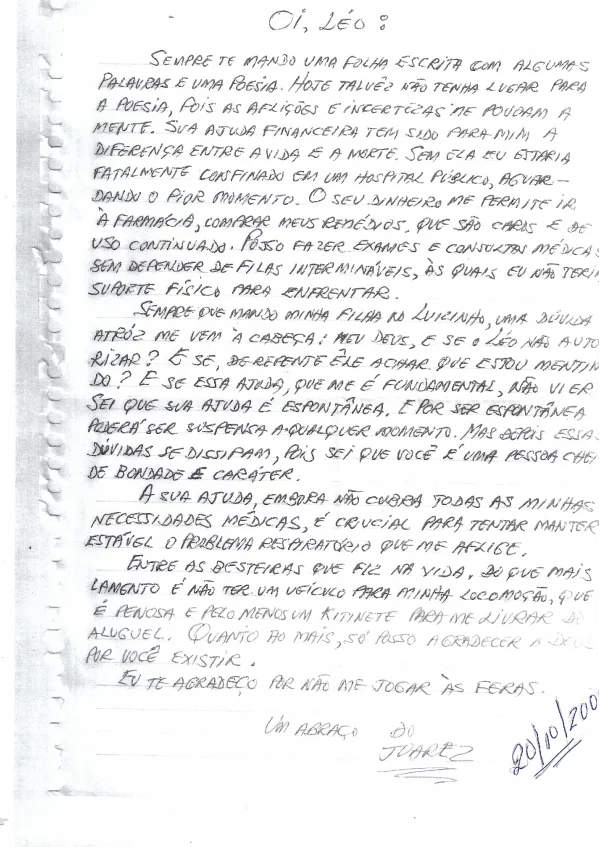 OI, LÉO:
SEMPRE TE MANDO UMA FOLHA ESCRITA COM ALGUMAS
PALAVRAS E UMA POESIA. HOJE TALVÊZ NÃO TENHA LUGAR PARA
A POESIA, POIS AS AFLIÇÕES E INCERTÊZAS ME POVOAM A
MENTE. SUA AJUDA FINANCEIRA TEM SIDO PARA MIM A
DIFERENÇA ENTRE A VIDA E A MORTE. SEM ELA EU ESTARIA
FATALMENTE CONFINADO EM UM HOSPITAL PÚBLICO, AGUAR-
DANDO O PIOR MOMENTO. O SEU DINHEIRO ME PERMITE IR
À FARMÁCIA, COMPRAR MEUS REMÉDIOS, QUE SÃO CAROS E DE
USO CONTINUADO. POSSO FAZER EXAMES E CONSULTAS MÉDICAS
SEM DEPENDER DE FILAS INTERMINÁVEIS, ÀS QUAIS EU NÃO TERI
SUPORTE FÍSICO PARA ENFRENTAR.
SEMPRE QUE MANDO MINHA FILHA NO LUIZINHO, UMA DÚVIDA
ATRÓZ ME VEM À CABEÇA: MEU DEUS, E SE O LÉO NÃO AUTO
RIZAR? E SE, DE REPENTE ÊLE ACHAR QUE ESTOU MENTIN
DO? E SE ESSA AJUDA, QUE ME É FUNDAMENTAL, NÃO VIER
SEI QUE SUA AJUDA É ESPONTÂNEA. E POR SER ESPONTÂNEA
PODERÁ SER SUSPENSA A QUALQUER MOMENTO. MAS DEPOIS ESSAS
DÚVIDAS SE DISSIPAM, POIS SEI QUE VOCÊ É UMA PESSOA CHEI
DE BONDADE E CARÁTER.
A SUA AJUDA, EMBORA NÃO CUBRA TODAS AS MINHAS
NECESSIDADES MÉDICAS, É CRUCIAL PARA TENTAR MANTER
ESTÁVEL O PROBLEMA RESPIRATÓRIO QUE ME AFLIGE.
ENTRE AS BESTEIRAS QUE FIZ NA VIDA, DO QUE MAIS
LAMENTO É NÃO TER UM VEÍCULO PARA MINHA LOCOMOÇÃO, QUE
É PENOSA E PELO MENOS UM KITINETE PARA ME LIVRAR DO
ALUGUEL. QUANTO AO MAIS, SÓ POSSO AGRADECER A DEUS
POR VOCÊ EXISTIR.
EU TE AGRADEÇO POR NÃO ME JOGAR ÀS FERAS.
UM ABRAÇO DO
JUAREZ
20/10/200